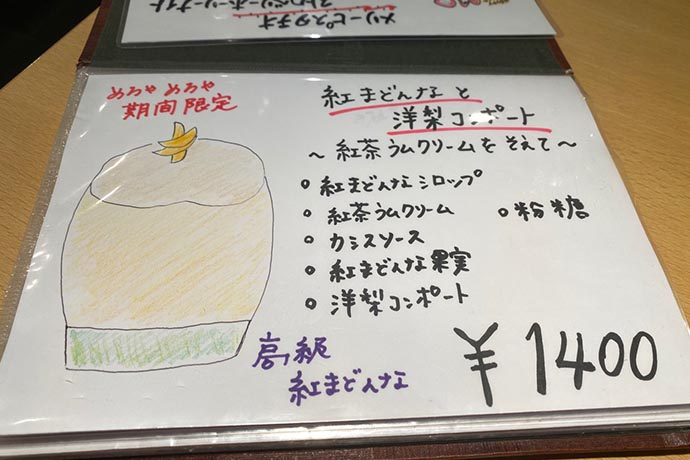 メリーピスタチオ
ストロベリーホーリーナイト
めちゃめちゃ
期間限定
紅まどんなと
洋梨コンポート
～紅茶ラムクリームをそえて～
○紅まどんなシロップ
○紅茶ラムクリーム
○カシスソース
○紅まどんな果実
○洋梨コンポート
○粉糖
高級
紅まどんな
¥1400